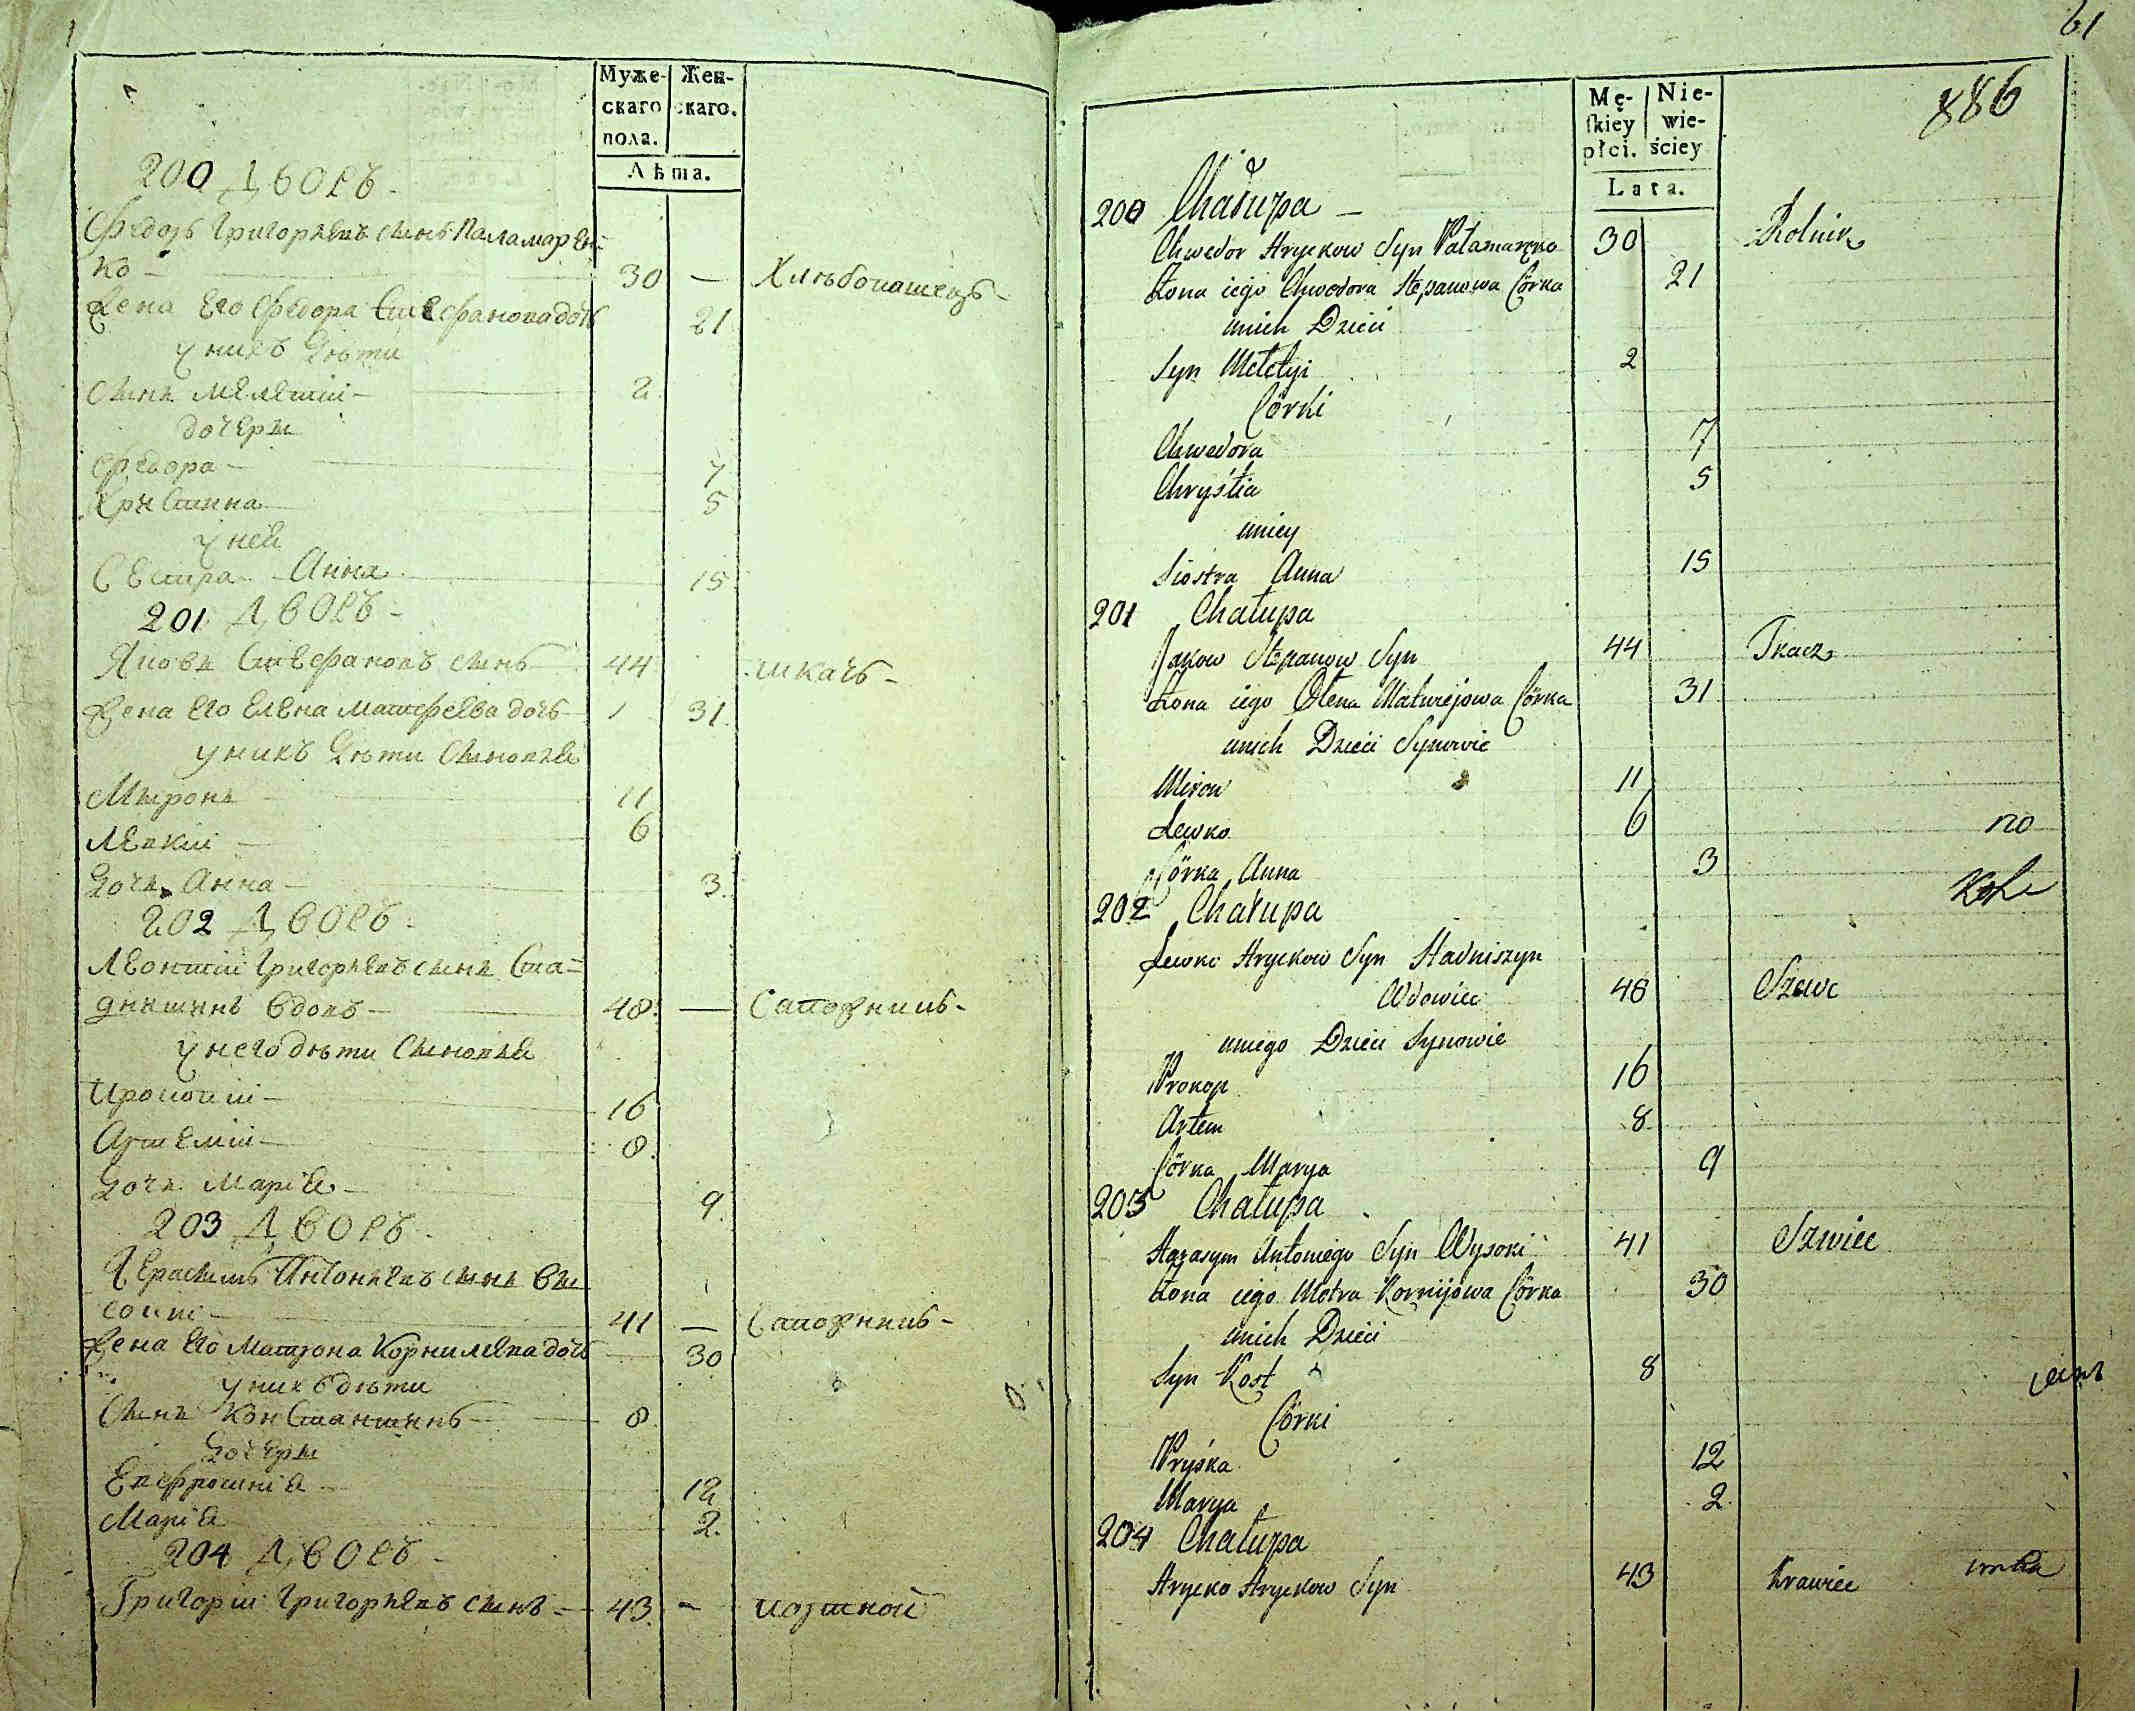 Муже-
скаго
пола.
Жен-
скаго.
Лѣта.
200 Дворъ -
Федоръ Григорьевъ сынъ Паламарен-
ко - 30 - Хлѣбопашецъ -
Жена его Федора Стефанова дочь 21
у нихъ дѣти
Сынъ Мелетiй - 2
дочери
Федора - 7
Христина 5
у ней
Сестра Анна 15
201 Дворъ -
Яковъ Стефановъ сынъ 44 ткачь -
Жена его Елена Матфеева дочь 31
у нихъ дѣти сыновья
Миронъ 11
Левкiй - 6
дочь Анна - 3
202 Дворъ -
Леонтiй Григорьевъ сынъ Ста=
днишинъ вдовъ - 48 - Сапожникъ -
у него дѣти сыновья
Прокопiй - 16
Артемiй - 8
дочь Марiя - 9
203 Дворъ -
Герасимъ Антоньевъ сынъ Вы
соцкi - 41 - Сапожникъ -
Жена его Матрона Корнилева дочь 30
у нихъ дѣти
Сынъ Константинъ - 8
дочери
Евфросинiя - 12
Марiя 2
204 Дворъ -
Григорiй Григорьевъ сынъ = 43 - портной
61
886
Mę-
skiey
płci.
Nie-
wie-
ściey
Lata.
200 Chałupa -
Chwedor Hryckow Syn Pałamarenko 30 Rolnik
Żona iego Chwedora Stepanowa Córka 21
unich Dzieci
Syn Meletyi 2
Córki
Chwedora 7
Chryśtia 5
uniey
Siostra Anna 15
201 Chałupa
Jakow Stepanow Syn 44 Tkacz
Żona iego Ołena Matwiejowa Córka 31
unich Dzieci Synowie
Miron 11
Lewko 6
Córka Anna 3
202 Chałupa
Lewko Hryckow Syn Stadniszyn
Wdowiec 48 Szewc
uniego Dzieci Synowie
Prokop 16
Artem 8
Córka Marya 9
203 Chałupa
Harasym Antoniego Syn Wysoki 41 Szwiec
Żona iego Motra Kornijowa Córka 30
unich Dzieci
Syn Kost 8
Córki
Pryśka 12
Marya 2
204 Chałupa
Hrycko Hryckow Syn 43 Krawiec